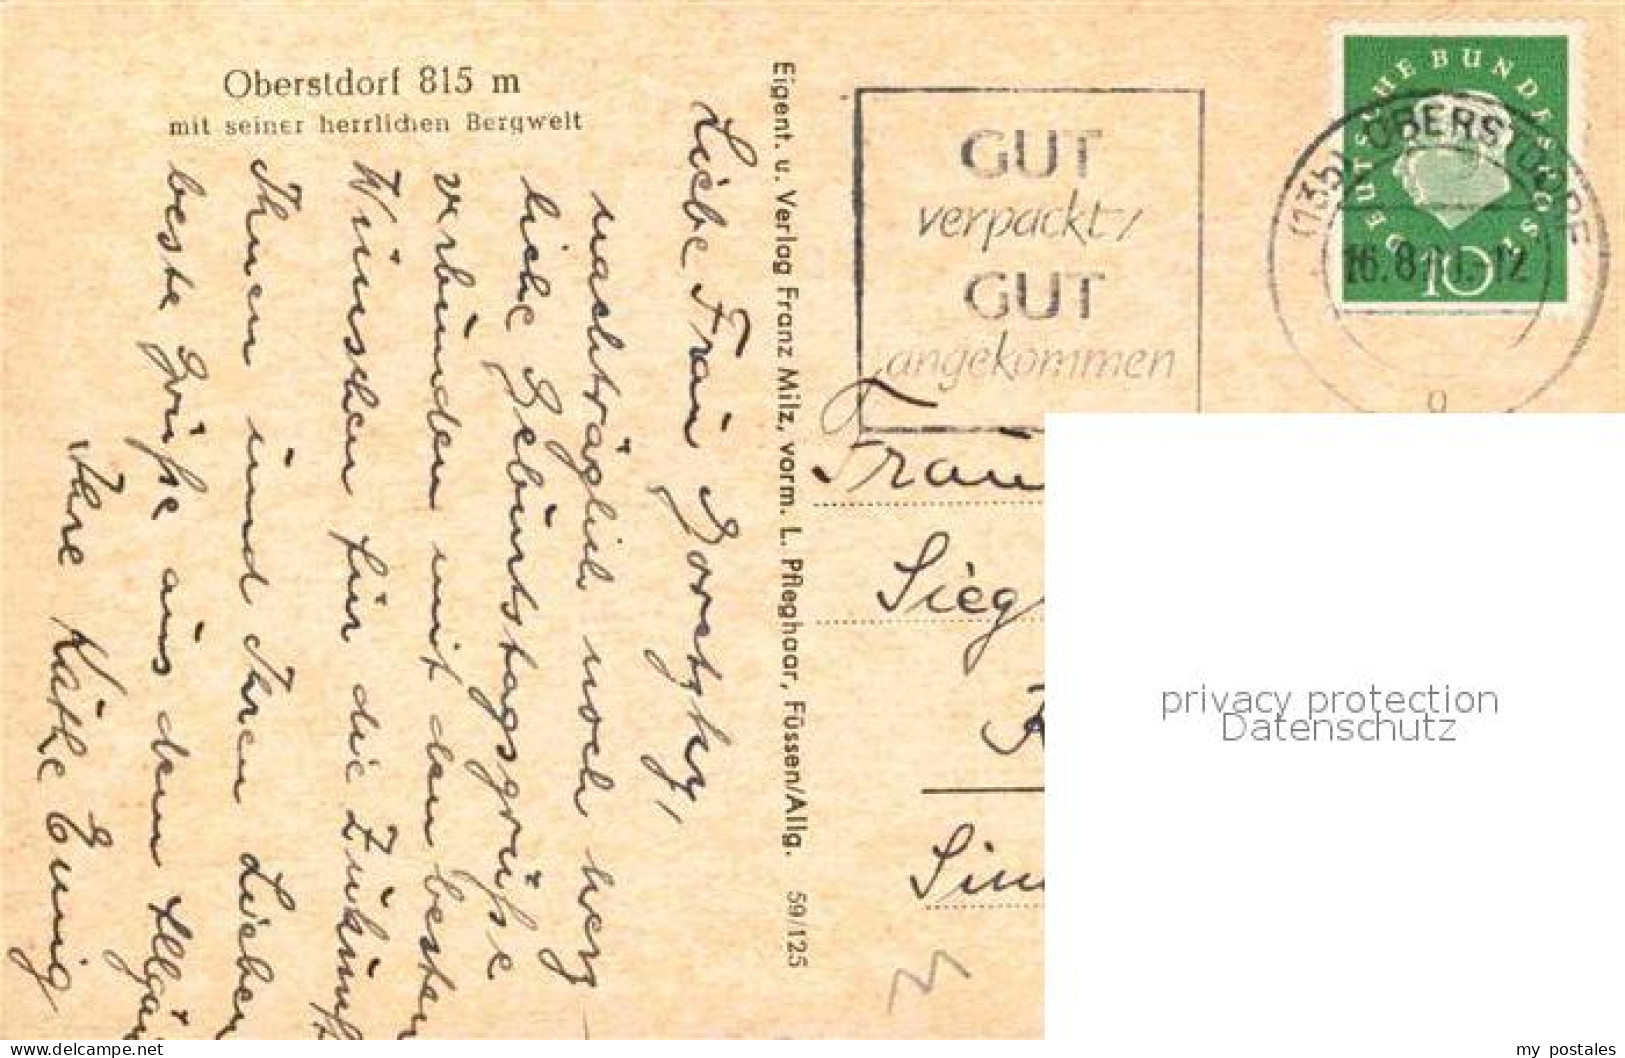 Oberstdorf 815 m
mit seiner herrlichen Bergwelt
Liebe Frau
nachträglich noch herz-
liche Geburtstagsgrüße
verbunden mit den besten
Wünschen für die Zukunft
Ihnen und Ihren Lieben
beste Grüße aus dem Allgäu
Ihre Käthe
Eigent. u. Verlag Franz Milz, vorm. L. Pfleghaar, Füssen/Allg. 59/125
GUT
verpackt,
GUT
angekommen
DEUTSCHE BUNDESPOST
10
(13b) OBERSTDORF
Frau
Sieg
privacy protection
Datenschutz
www.delcampe.net
my_postales